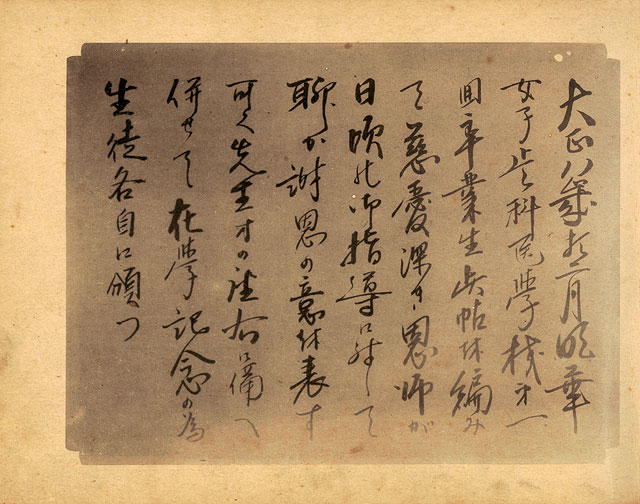 大正八歳十二月明華
女子歯科医学校第一
回卒業生此帖を編み
て慈愛深き恩師が
日頃の御指導に対して
聊か謝恩の意を表す
可く先生方の座右に備へ
併せて在学記念の為
生徒各自に頒つ